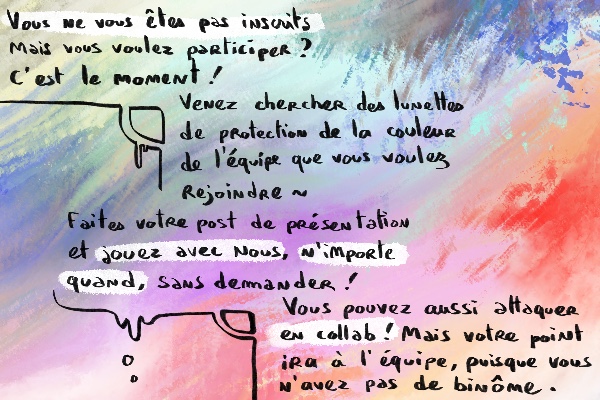 Vous ne vous êtes pas inscrits
Mais vous voulez participer ?
C'est le moment !
Venez chercher des lunettes
de protection de la couleur
de l'équipe que vous voulez
Rejoindre ~
Faites votre post de présentation
et jouez avec Nous, n'importe
quand, sans demander !
Vous pouvez aussi attaquer
en collab ! Mais votre point
ira à l'équipe, puisque vous
n'avez pas de binôme.